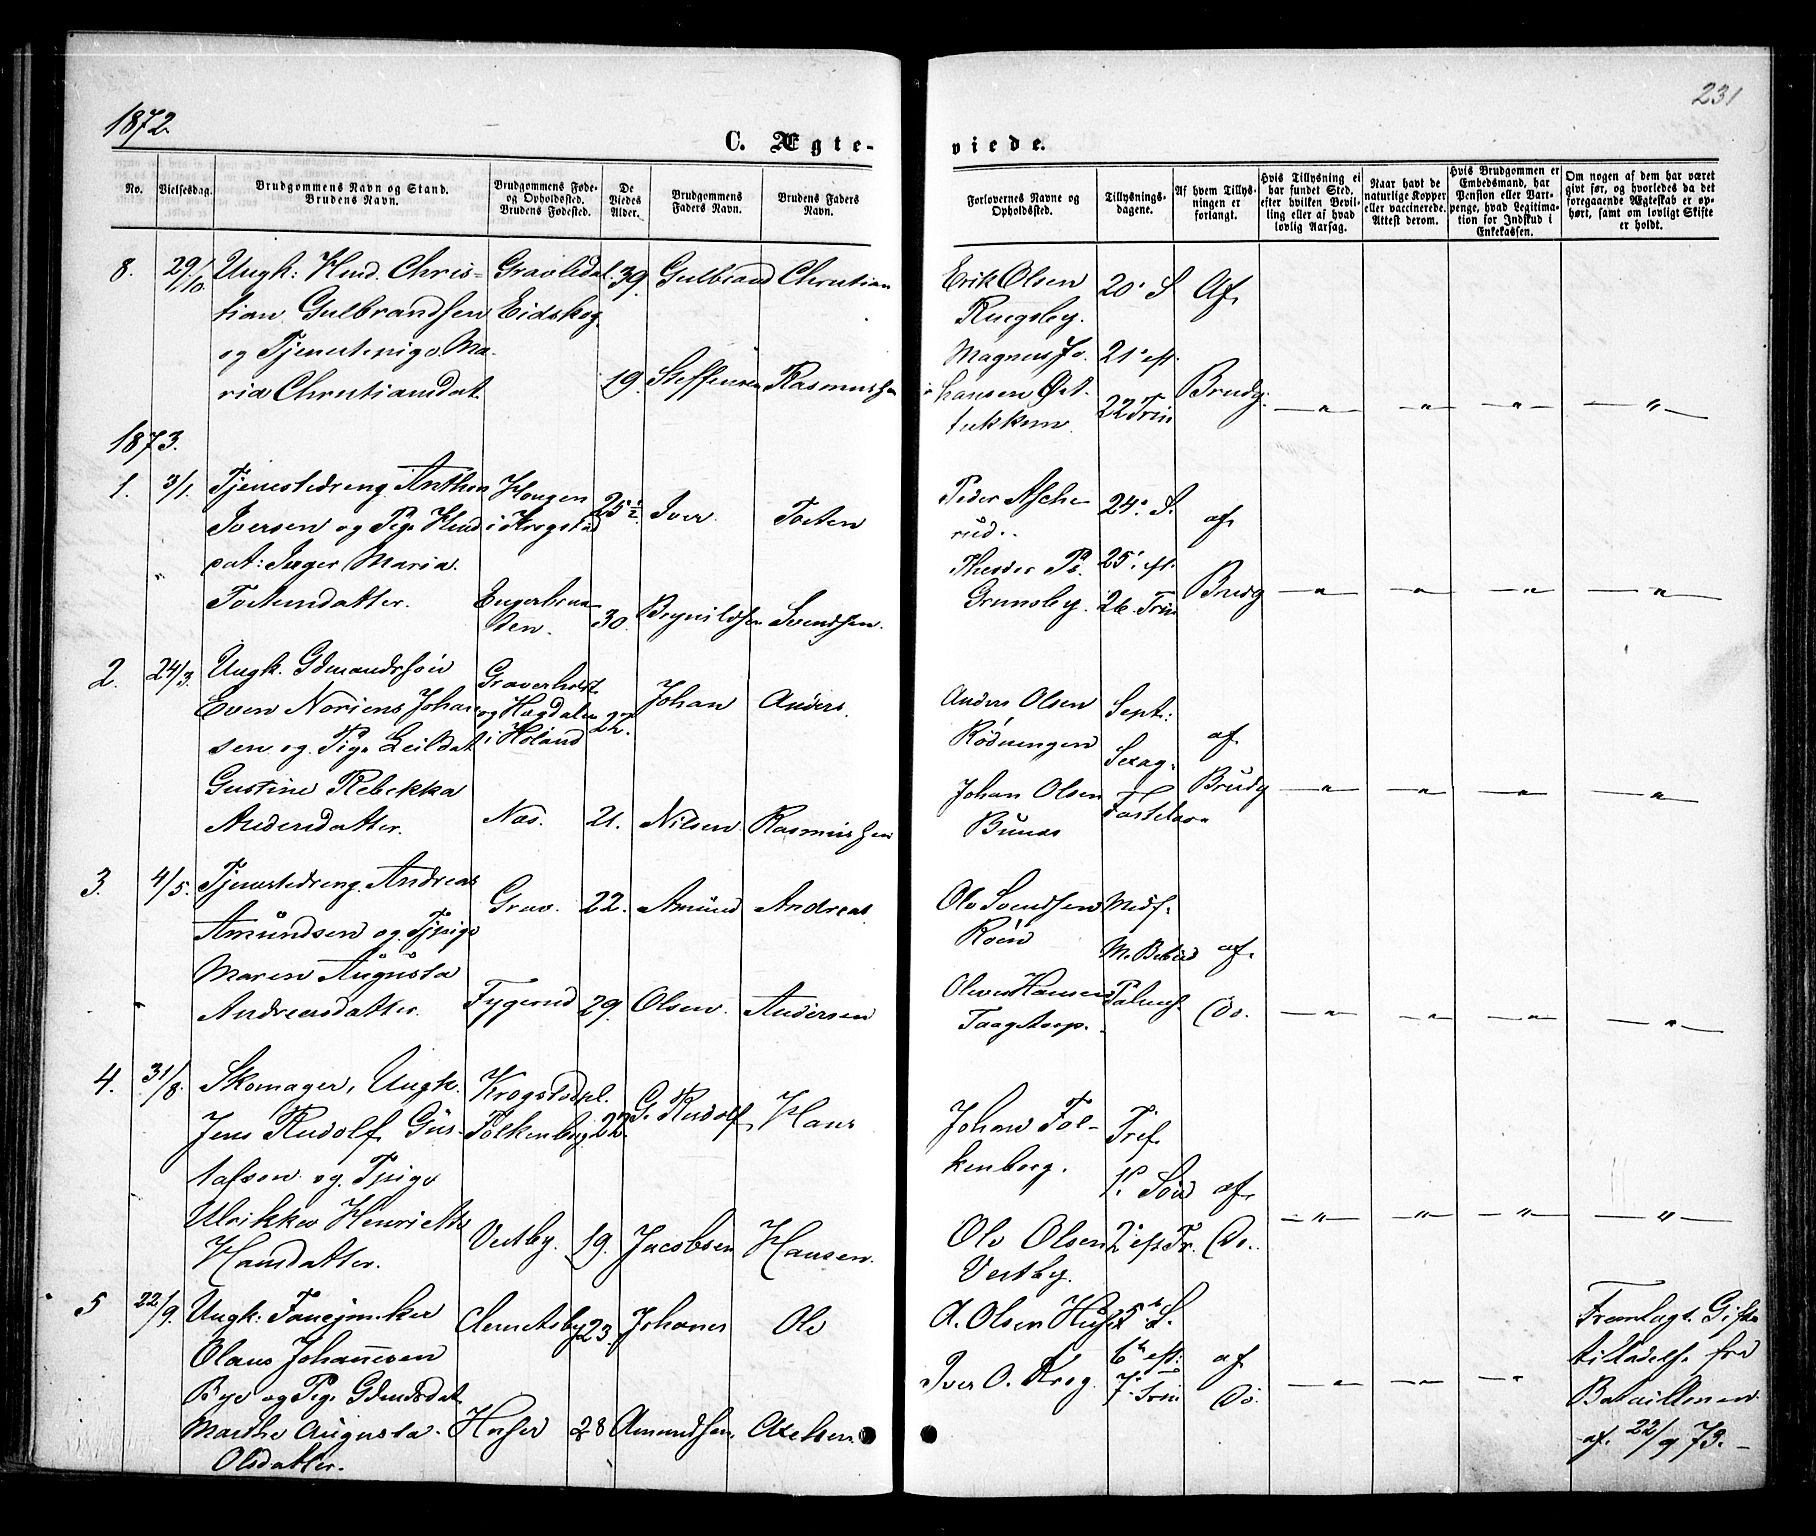 1872.
231
C. Ægte-
viede.
No.
Vielsesdag.
Brudgommens Navn og Stand.
Brudens Navn.
Brudgommens Føde-
og Opholdssted.
Brudens Fødested.
De
Viedes
Alder.
Brudgommens
Faders Navn.
Brudens Faders
Navn.
Forlovernes Navne og
Opholdssted.
Tillysnings-
dagene.
Af hvem Tillys-
ningen er
forlangt.
Hvis Tillysning ei
har fundet Sted,
efter hvilken Bevil-
ling eller af hvad
lovlig Aarsag.
Naar havt de
naturlige Kopper
eller vaccinerede.
Attest derom.
Hvis Brudgommen er
Embedsmand, har
Pension eller Vart-
penge, hvad Legitima-
tion for Indskud i
Enkekassen.
Om nogen af dem har været
givt før, og hvorledes da det
foregaaende Ægteskab er op-
hørt, samt om lovligt Skifte
er holdt.
8.
29/10.
Ungk: Kmd. Chris-
tian Gulbrandsen
og Tjenestepige Ma-
ria Christiansdat.
Gravlidal
Eidskog
39.
19.
Gulbrand
Steffensen
Christian
Rasmussen
Erik Olsen
Ringsby.
Magnus Jo-
hansen Øst-
20. S.
21. eft.
22 Trin
Af
Brudg.
1873.
1.
3/1.
Tjenestedreng Anthon
Iversen og Pige Kmd
dat: Inger Maria
Tostensdatter.
Haugen
i Krogstad
25 1/2
30.
Iver.
Brynildsen
Tosten
Svendsen.
Peder Asche-
rud.
Grimsby.
24. S.
25. eft.
26. Trin
af
Brudg
2.
24/3.
Ungk. Gdmandssøn
Even Noriens Johan-
sen og Pige Leildat
Gustine Rebekka
Andersdatter.
Graverholt
og Hagdalen
i Høland
Næs.
22.
21.
Johan
Nilsen
Anders.
Rasmussen
Anders Olsen
Rødningen
Johan Olsen
Bunæs
Sept:
Sexag.
Fastelavn
af
Brudg
3.
4/5.
Tjenestedreng Andreas
Amundsen og Tjpige
Maren Augusta
Andreasdatter.
Grav.
Tygerud
22.
29.
Amund
Olsen.
Andreas
Andersen
Ole Svendsen
Røen
Oliver Hansen
Taagstorp.
Midf.
M. Bebud
Palmes.
af
Do.
4.
31/8.
Skomager, Ungk.
Jens Rudolf Gus-
tafson og Tjpige
Ulrikke Henriette
Hansdatter.
Krogstadpl.
Folkenborg
Vestby.
22.
19.
G. Rudolf
Jacobsen
Hans
Hansen.
Johan Fol-
kenborg.
Ole Olsen
Vestby.
Tref.
1. Sønd
2. eft Tr.
af
Do.
5
22/9.
Ungk: Tønejunker
Olaus Johannesen
Bye og Pige Gdmdsdat
Marthe Augusta
Olsdatter.
Clemetsby
23.
28
Johanes
Amundsen.
Ole
Axelsen
A. Olsen
Iver O. Krog
5te S.
6te eft:
7. Trin
af
Do.
Fremlagt Gifte
tilladelse fra
Bataillonen
af 22/9 73.